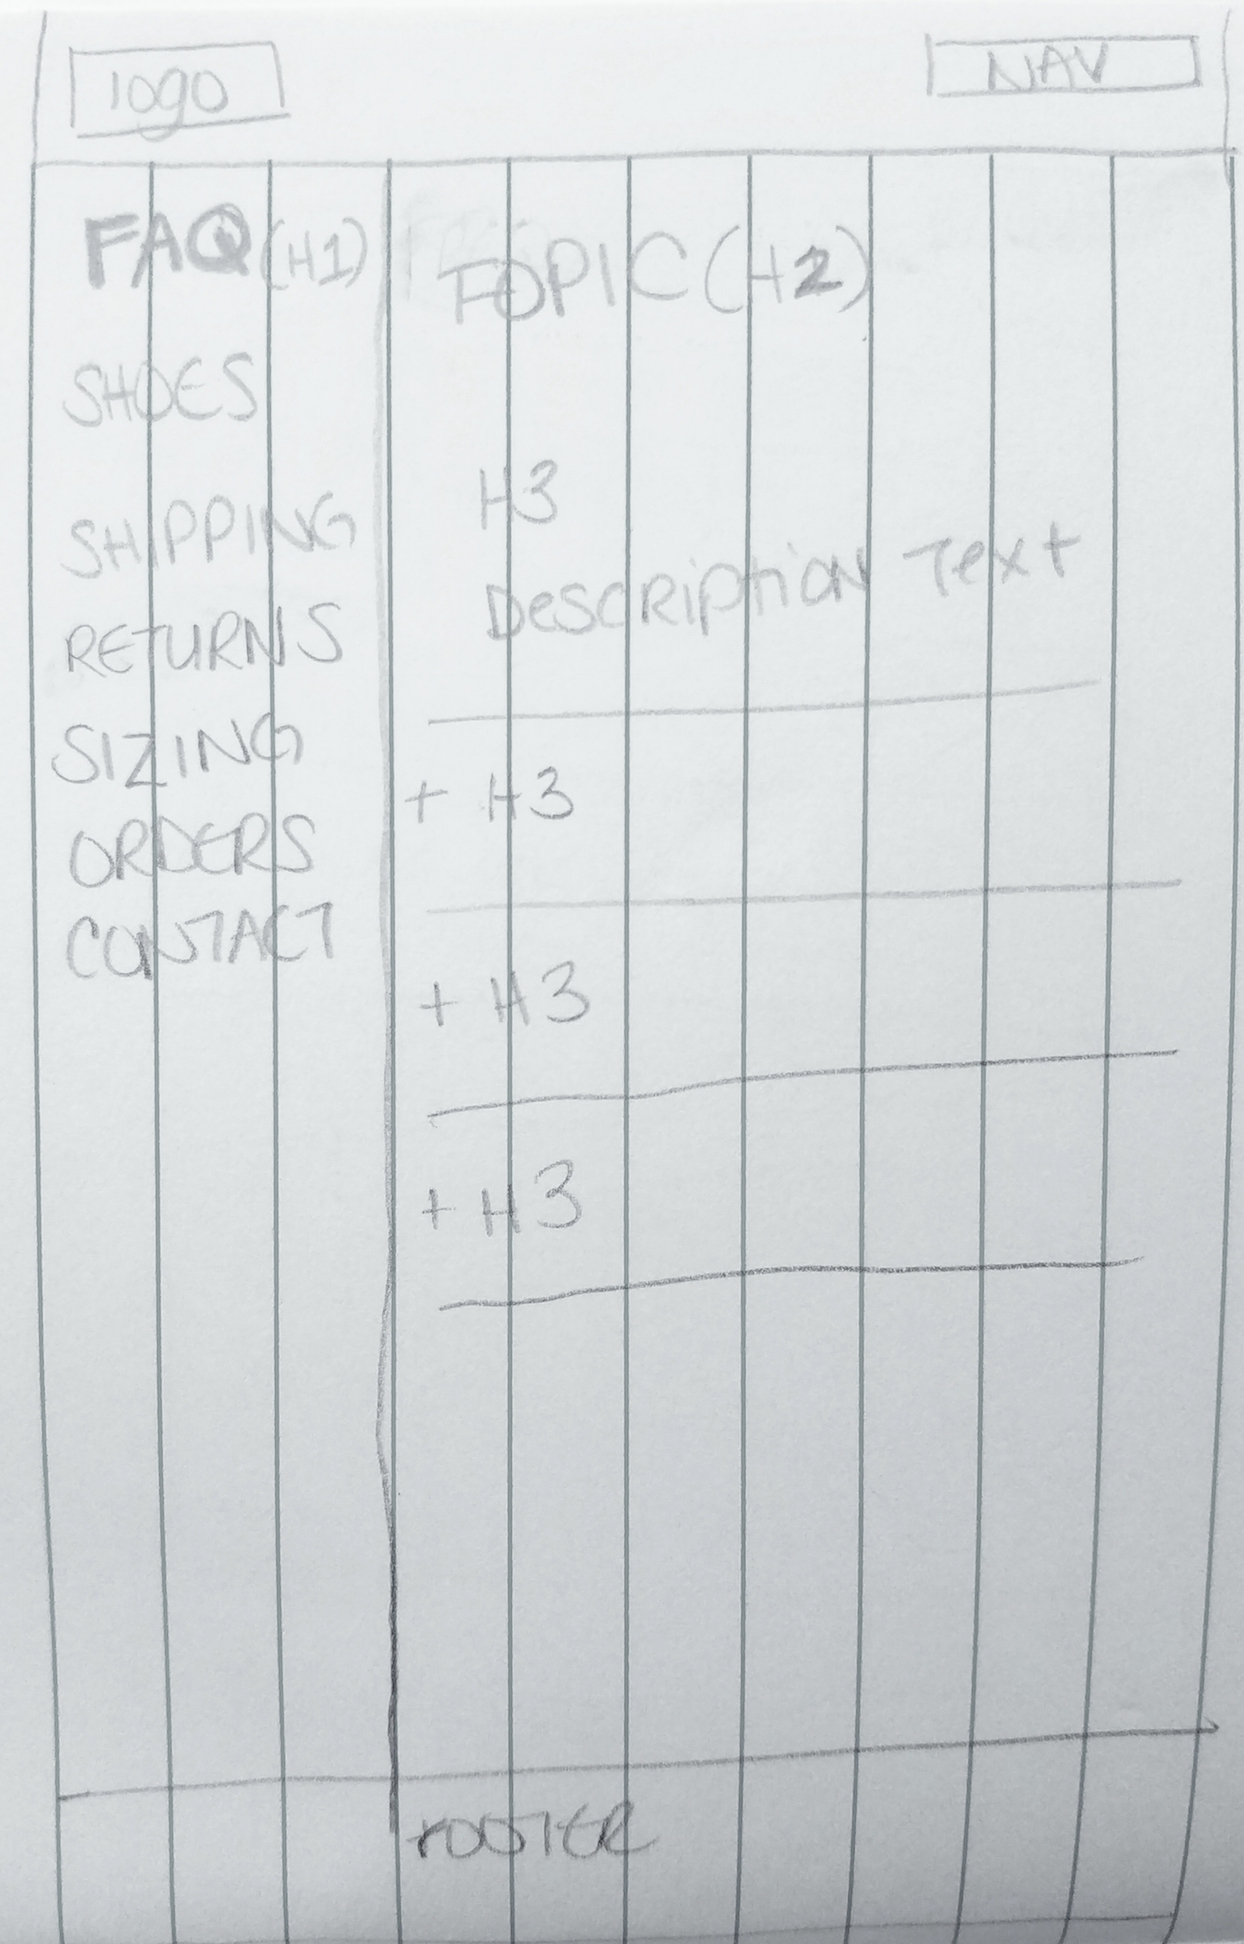 logo
NAV
FAQ (H1)
SHOES
SHIPPING
RETURNS
SIZING
ORDERS
CONTACT
TOPIC (H2)
H3
Description Text
+ H3
+ H3
+ H3
FOOTER